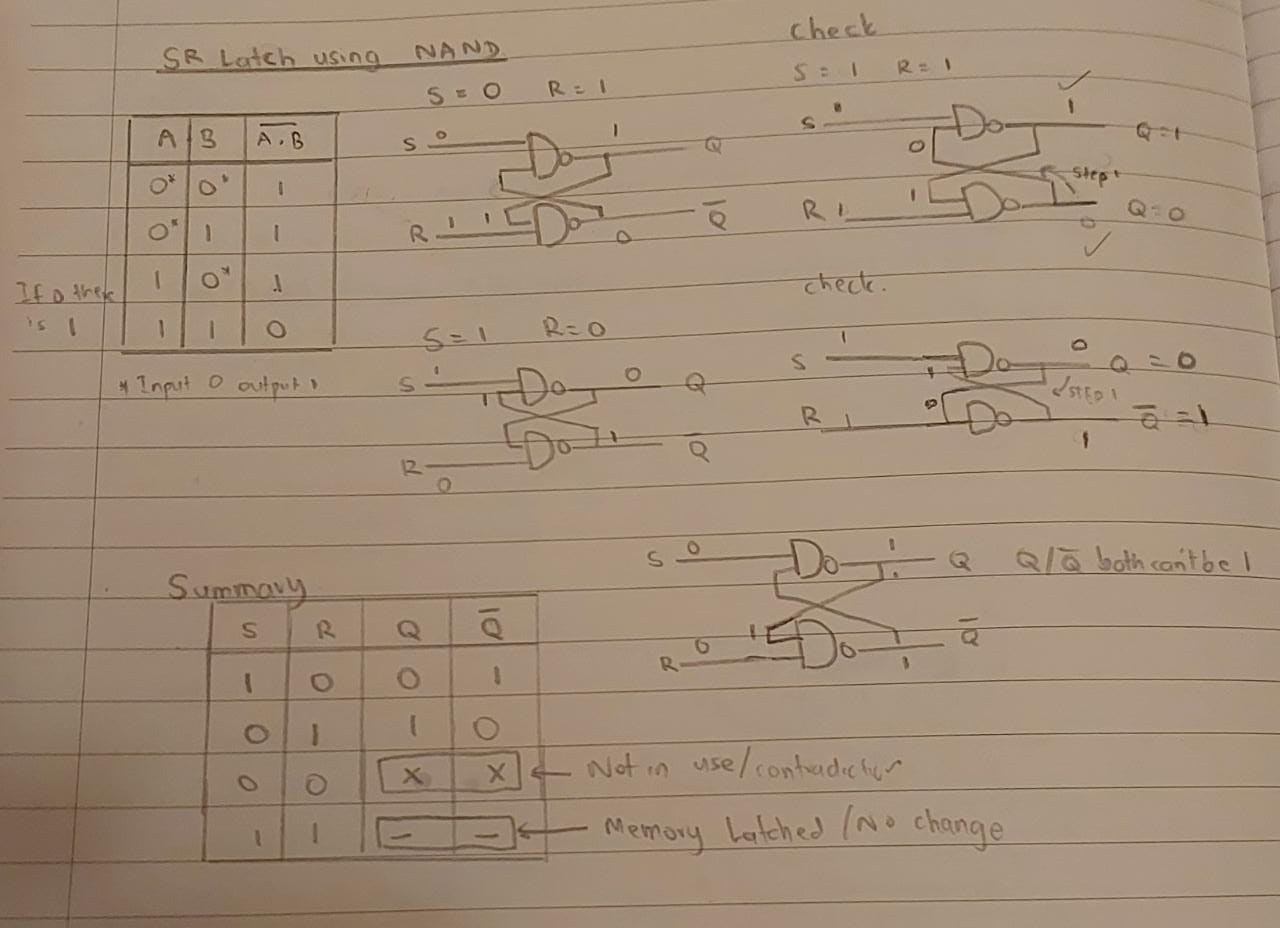 SR Latch using NAND
A B A̅.̅B̅
0* 0* 1
0* 1 1
1 0* 1
1 1 0
If 0 there
is 1
* Input 0 output 1
S = 0 R = 1
S 0 1 Q
R 1 1 0 Q̅
check
S = 1 R = 1
S 1 Q=1
0 Step 1
R 1 1 0 Q=0
S = 1 R=0
S 1 1 0 Q
R 0 1 Q̅
check.
S 1 1 0 Q = 0
STEP 1
R 1 0 1 Q̅ = 1
S 0 1 Q Q/Q̅ both can't be 1
R 0 1 1 Q̅
Summary
S R Q Q̅
1 0 0 1
0 1 1 0
0 0 X X ← Not in use/contradiction
1 1 - - ← Memory Latched /No change